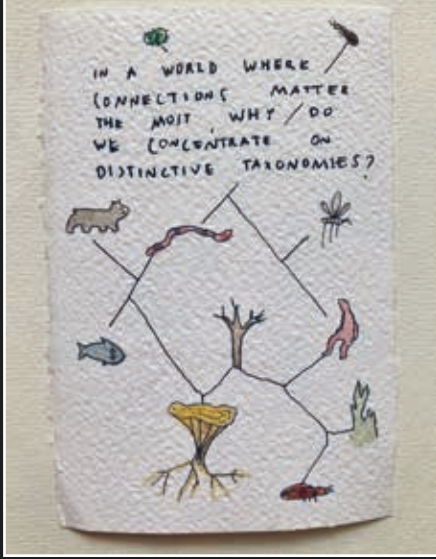 IN A WORLD WHERE
CONNECTIONS MATTER
THE MOST, WHY DO
WE CONCENTRATE ON
DISTINCTIVE TAXONOMIES?